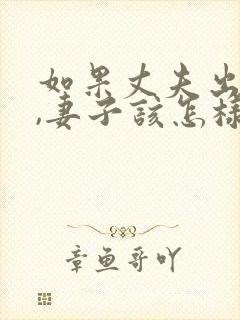 如果丈夫出
,妻子该怎样
章鱼哥吖